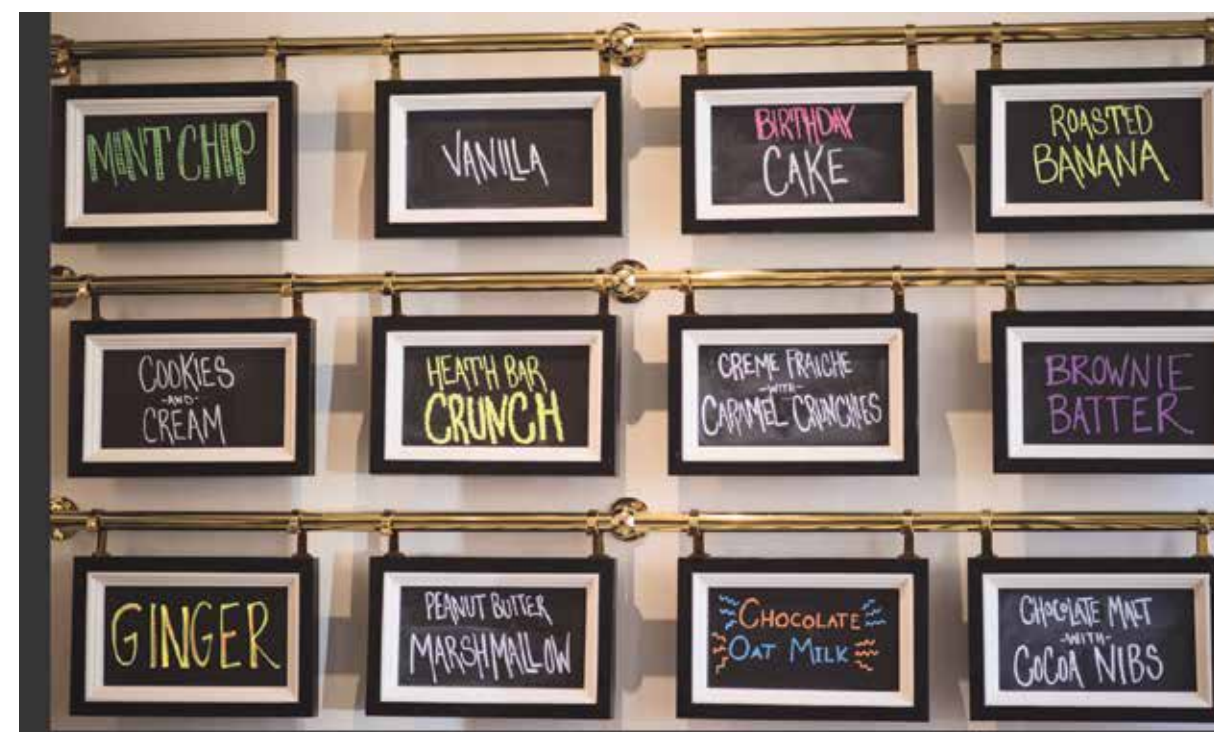 MINT CHIP
VANILLA
BIRTHDAY
CAKE
ROASTED
BANANA
COOKIES
-AND-
CREAM
HEATH BAR
CRUNCH
CREME FRAICHE
-WITH-
CARAMEL CRUNCHIES
BROWNIE
BATTER
GINGER
PEANUT BUTTER
MARSHMALLOW
CHOCOLATE
OAT MILK
CHOCOLATE MALT
-WITH-
COCOA NIBS